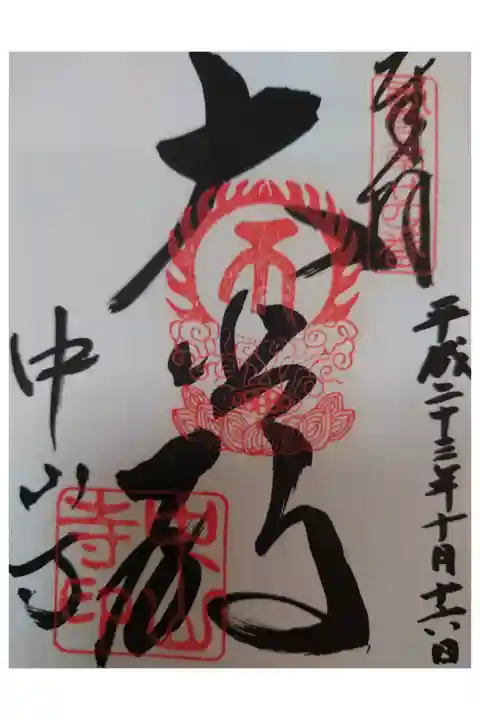 奉拝
平成二十三年十月 日
大悲殿
中山寺
中山
寺印